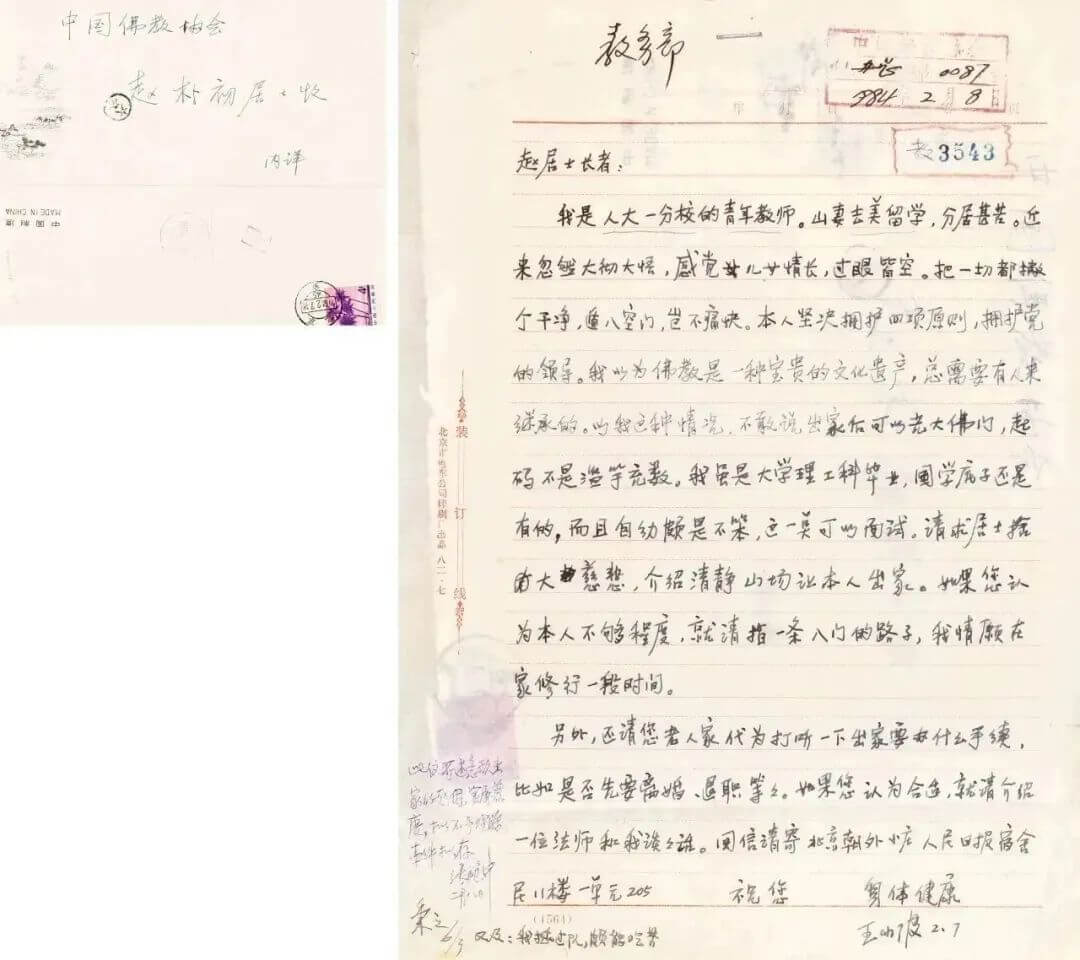 中国佛教协会
赵朴初居士收
内详
中国制造
MADE IN CHINA
教务部
0087
1984 2月8日
3543
赵居士长者：
我是人大一分校的青年教师。山妻去美留学，分居甚苦。近
来忽然大彻大悟，感觉儿女情长，过眼皆空。把一切都撇
个干净，遁入空门，岂不痛快。本人坚决拥护四项原则，拥护党
的领导。我以为佛教是一种宝贵的文化遗产，总需要有人来
继承的。以我这种情况，不敢说出家后可以光大佛门，起
码不是滥竽充数。我虽是大学理工科毕业，国学底子还是
有的，而且自幼颇是不笨，这一点可以面试。请求居士捨
大慈悲，介绍清静山场让本人出家。如果您认
为本人不够程度，就请指一条入门的路子，我情愿在
家修行一段时间。
另外，还请您老人家代为打听一下出家要办什么手续，
比如是否先要离婚、退职等々。如果您认为合适，就请介绍
一位法师和我谈々。回信请寄北京朝外小庄人民日报宿舍
11楼一单元205
祝您
身体健康
王小波 2.7
又及：我插过队，颇能吃苦
(1564)
装订线
八二·七